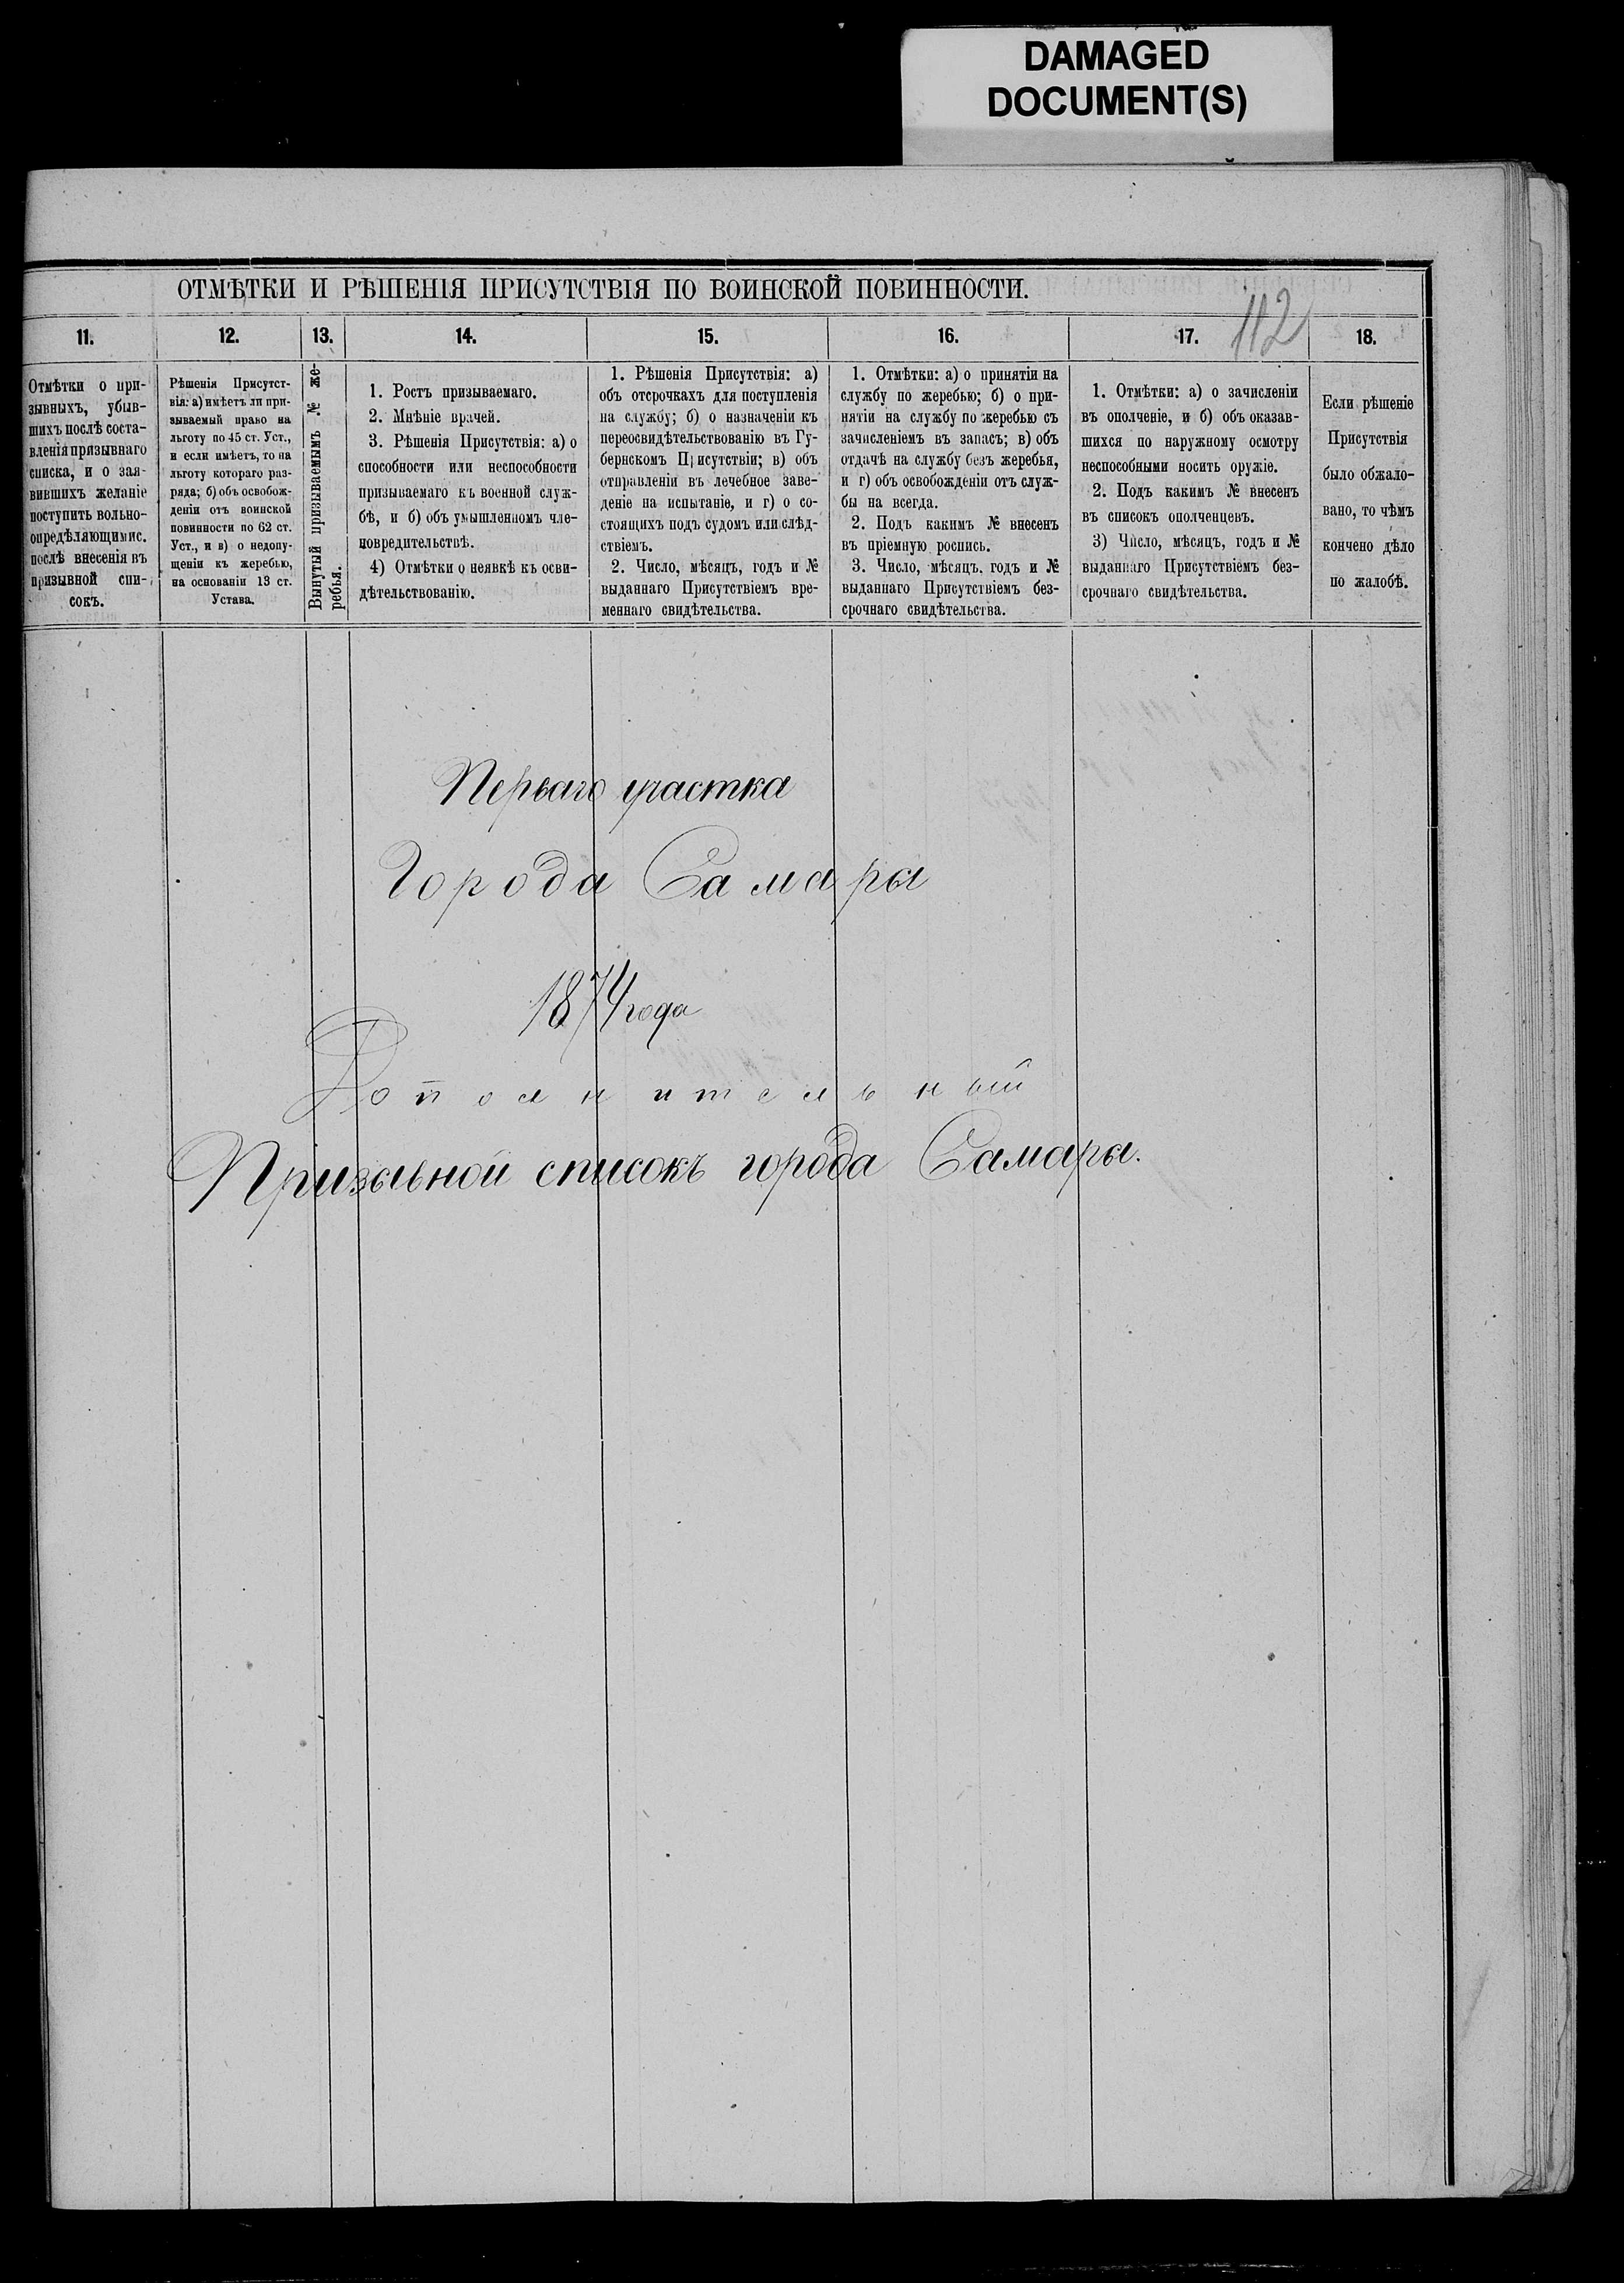 DAMAGED
DOCUMENT(S)
ОТМѢТКИ И РѢШЕНІЯ ПРИСУТСТВІЯ ПО ВОИНСКОЙ ПОВИННОСТИ.
112
11.
12.
13.
14.
15.
16.
17.
18.
Отмѣтки о при-
зывныхъ, убыв-
шихъ послѣ соста-
вленія призывнаго
списка, и о зая-
вившихъ желаніе
поступить вольно-
опредѣляющимис.
послѣ внесенія въ
призывной спи-
сокъ.
Рѣшенія Присутст-
вія: а) имѣетъ ли при-
зываемый право на
льготу по 45 ст. Уст.,
и если имѣетъ, то на
льготу котораго раз-
ряда; б) объ освобож-
деніи отъ воинской
повинности по 62 ст.
Уст., и в) о недопу-
щеніи къ жеребью,
на основаніи 13 ст.
Устава.
Вынутый призываемымъ № же-
ребья.
1. Ростъ призываемаго.
2. Мнѣніе врачей.
3. Рѣшенія Присутствія: а) о
способности или неспособности
призываемаго къ военной служ-
бѣ, и б) объ умышленномъ чле-
новредительствѣ.
4) Отмѣтки о неявкѣ къ осви-
дѣтельствованію.
1. Рѣшенія Присутствія: а)
объ отсрочкахъ для поступленія
на службу; б) о назначеніи къ
переосвидѣтельствованію въ Гу-
бернскомъ Присутствіи; в) объ
отправленіи въ лечебное заве-
деніе на испытаніе, и г) о со-
стоящихъ подъ судомъ или слѣд-
ствіемъ.
2. Число, мѣсяцъ, годъ и №
выданнаго Присутствіемъ вре-
меннаго свидѣтельства.
1. Отмѣтки: а) о принятіи на
службу по жеребью; б) о при-
нятіи на службу по жеребью съ
зачисленіемъ въ запасъ; в) объ
отдачѣ на службу безъ жеребья,
и г) объ освобожденіи отъ служ-
бы на всегда.
2. Подъ какимъ № внесенъ
въ пріемную роспись.
3. Число, мѣсяцъ, годъ и №
выданнаго Присутствіемъ без-
срочнаго свидѣтельства.
1. Отмѣтки: а) о зачисленіи
въ ополченіе, и б) объ оказав-
шихся по наружному осмотру
неспособными носить оружіе.
2. Подъ какимъ № внесенъ
въ списокъ ополченцевъ.
3) Число, мѣсяцъ, годъ и №
выданнаго Присутствіемъ без-
срочнаго свидѣтельства.
Если рѣшеніе
Присутствія
было обжало-
вано, то чѣмъ
кончено дѣло
по жалобѣ.
Перваго участка
Города Самары
1874 года
Дополнительный
Призывной списокъ города Самары.